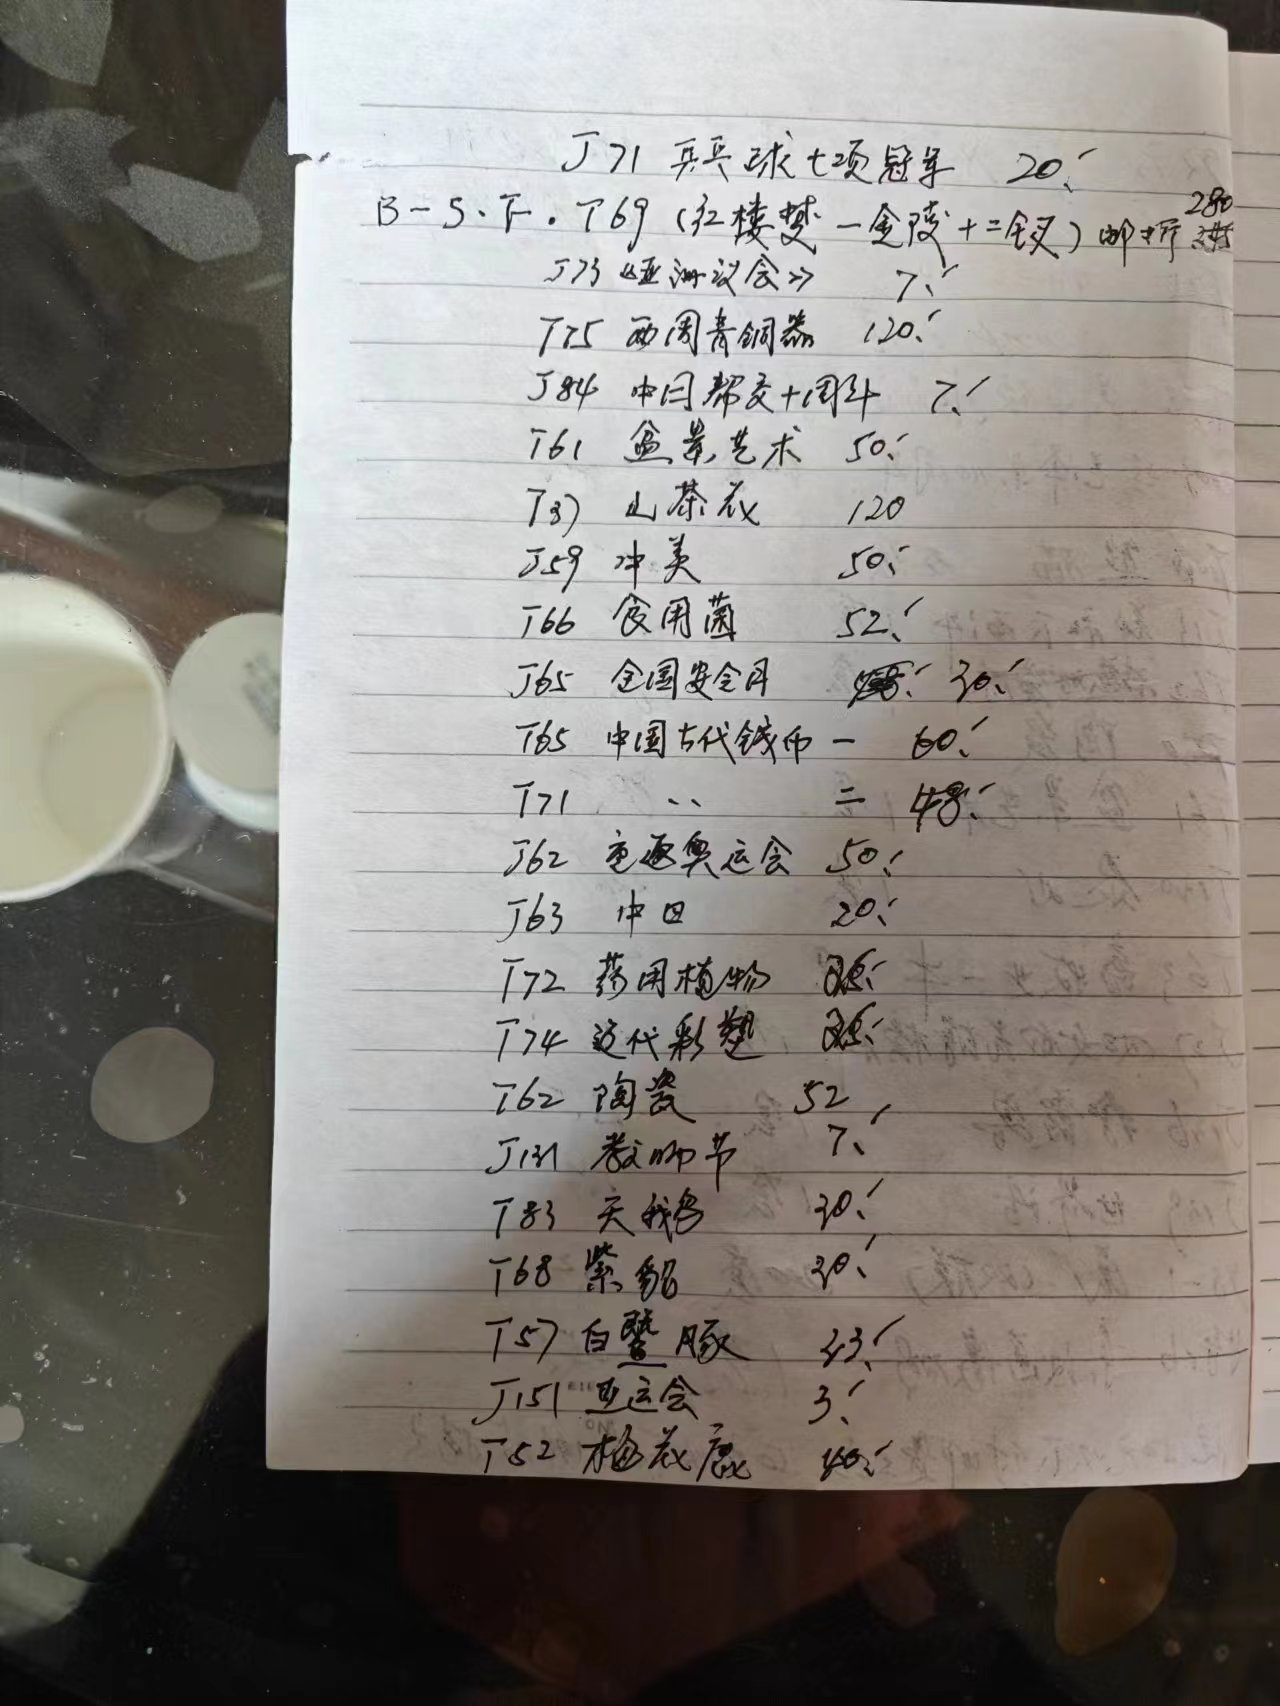 J71 乒乓球七项冠军 20.
B-S.F.T69(红楼梦—金陵十二钗)邮折 280
J73《亚洲议会》 7.
T75 西周青铜器 120.
J84 中日邦交十周年 7.
T61 盆景艺术 50.
T37 山茶花 120
J59 中美 50.
T66 食用菌 52.
J65 全国安全月 30.
T65 中国古代钱币 一 60.
T71 〃 二 48.
J62 重返奥运会 50.
J63 中日 20.
T72 药用植物
T74 近代彩塑
T62 陶瓷 52
J131 教师节 7.
T83 天鹅 30.
T68 紫貂 30.
T57 白暨豚 33.
J151 亚运会 3.
T52 梅花鹿 40.